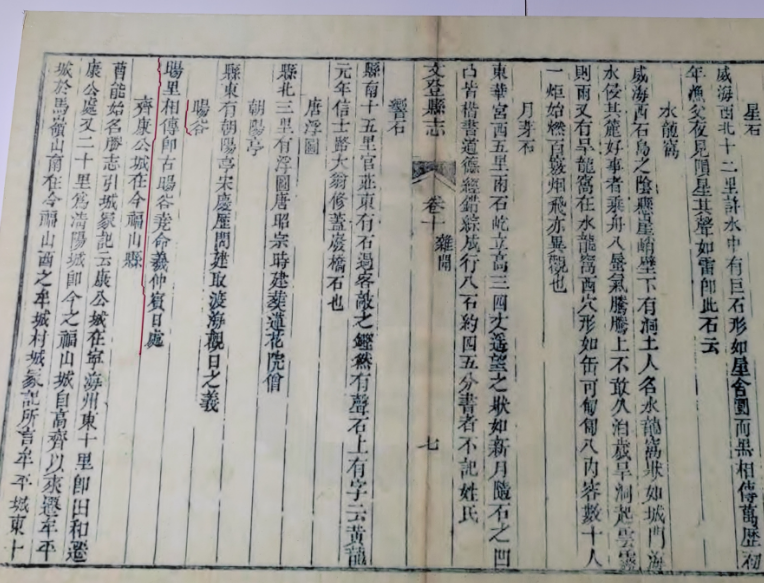 星石
威海西北十二里許水中有巨石形如星舍圓而黑相傳萬歷初
年漁父夜見隕星其聲如雷即此石云
水龍窩
威海西石島之陰懸崖峭壁下有洞土人名水龍窩狀如城門海
水侵其麓好事者乘舟入蜃氣騰騰上不敢久治歲旱洞起雲靄
則雨又有旱龍窩在水龍窩西穴形如缶可匍匐入內容數十人
一炬始燃百竅烟飛亦異觀也
月芽石
東華宮西五里兩石屹立高三四丈遥望之狀如新月隨石之凹
凸皆楷書道德經錯綜成行入石約四五分書者不記姓氏
文登縣志 卷十 雜聞 七
響石
縣南十五里官莊東有石過客敲之鏗然有聲石上有字云黃龍
元年信士路大翁修蓋廢橋石也
唐浮圖
縣北三里有浮圖唐昭宗時建葬蓮花院僧
朝陽亭
縣東有朝陽亭宋慶歷間建取渡海觀日之義
暘谷
暘里相傳即古暘谷堯命羲仲賓日處
齊康公城在今福山縣
曹能始名勝志引城冢記云康公城在寧海州東十里即田和遷
康公處又二十里爲清陽城即今之福山城自高齊以來遷牟平
城於馬嶺山南在今福山西之牟城村城冢記所言牟平城東十